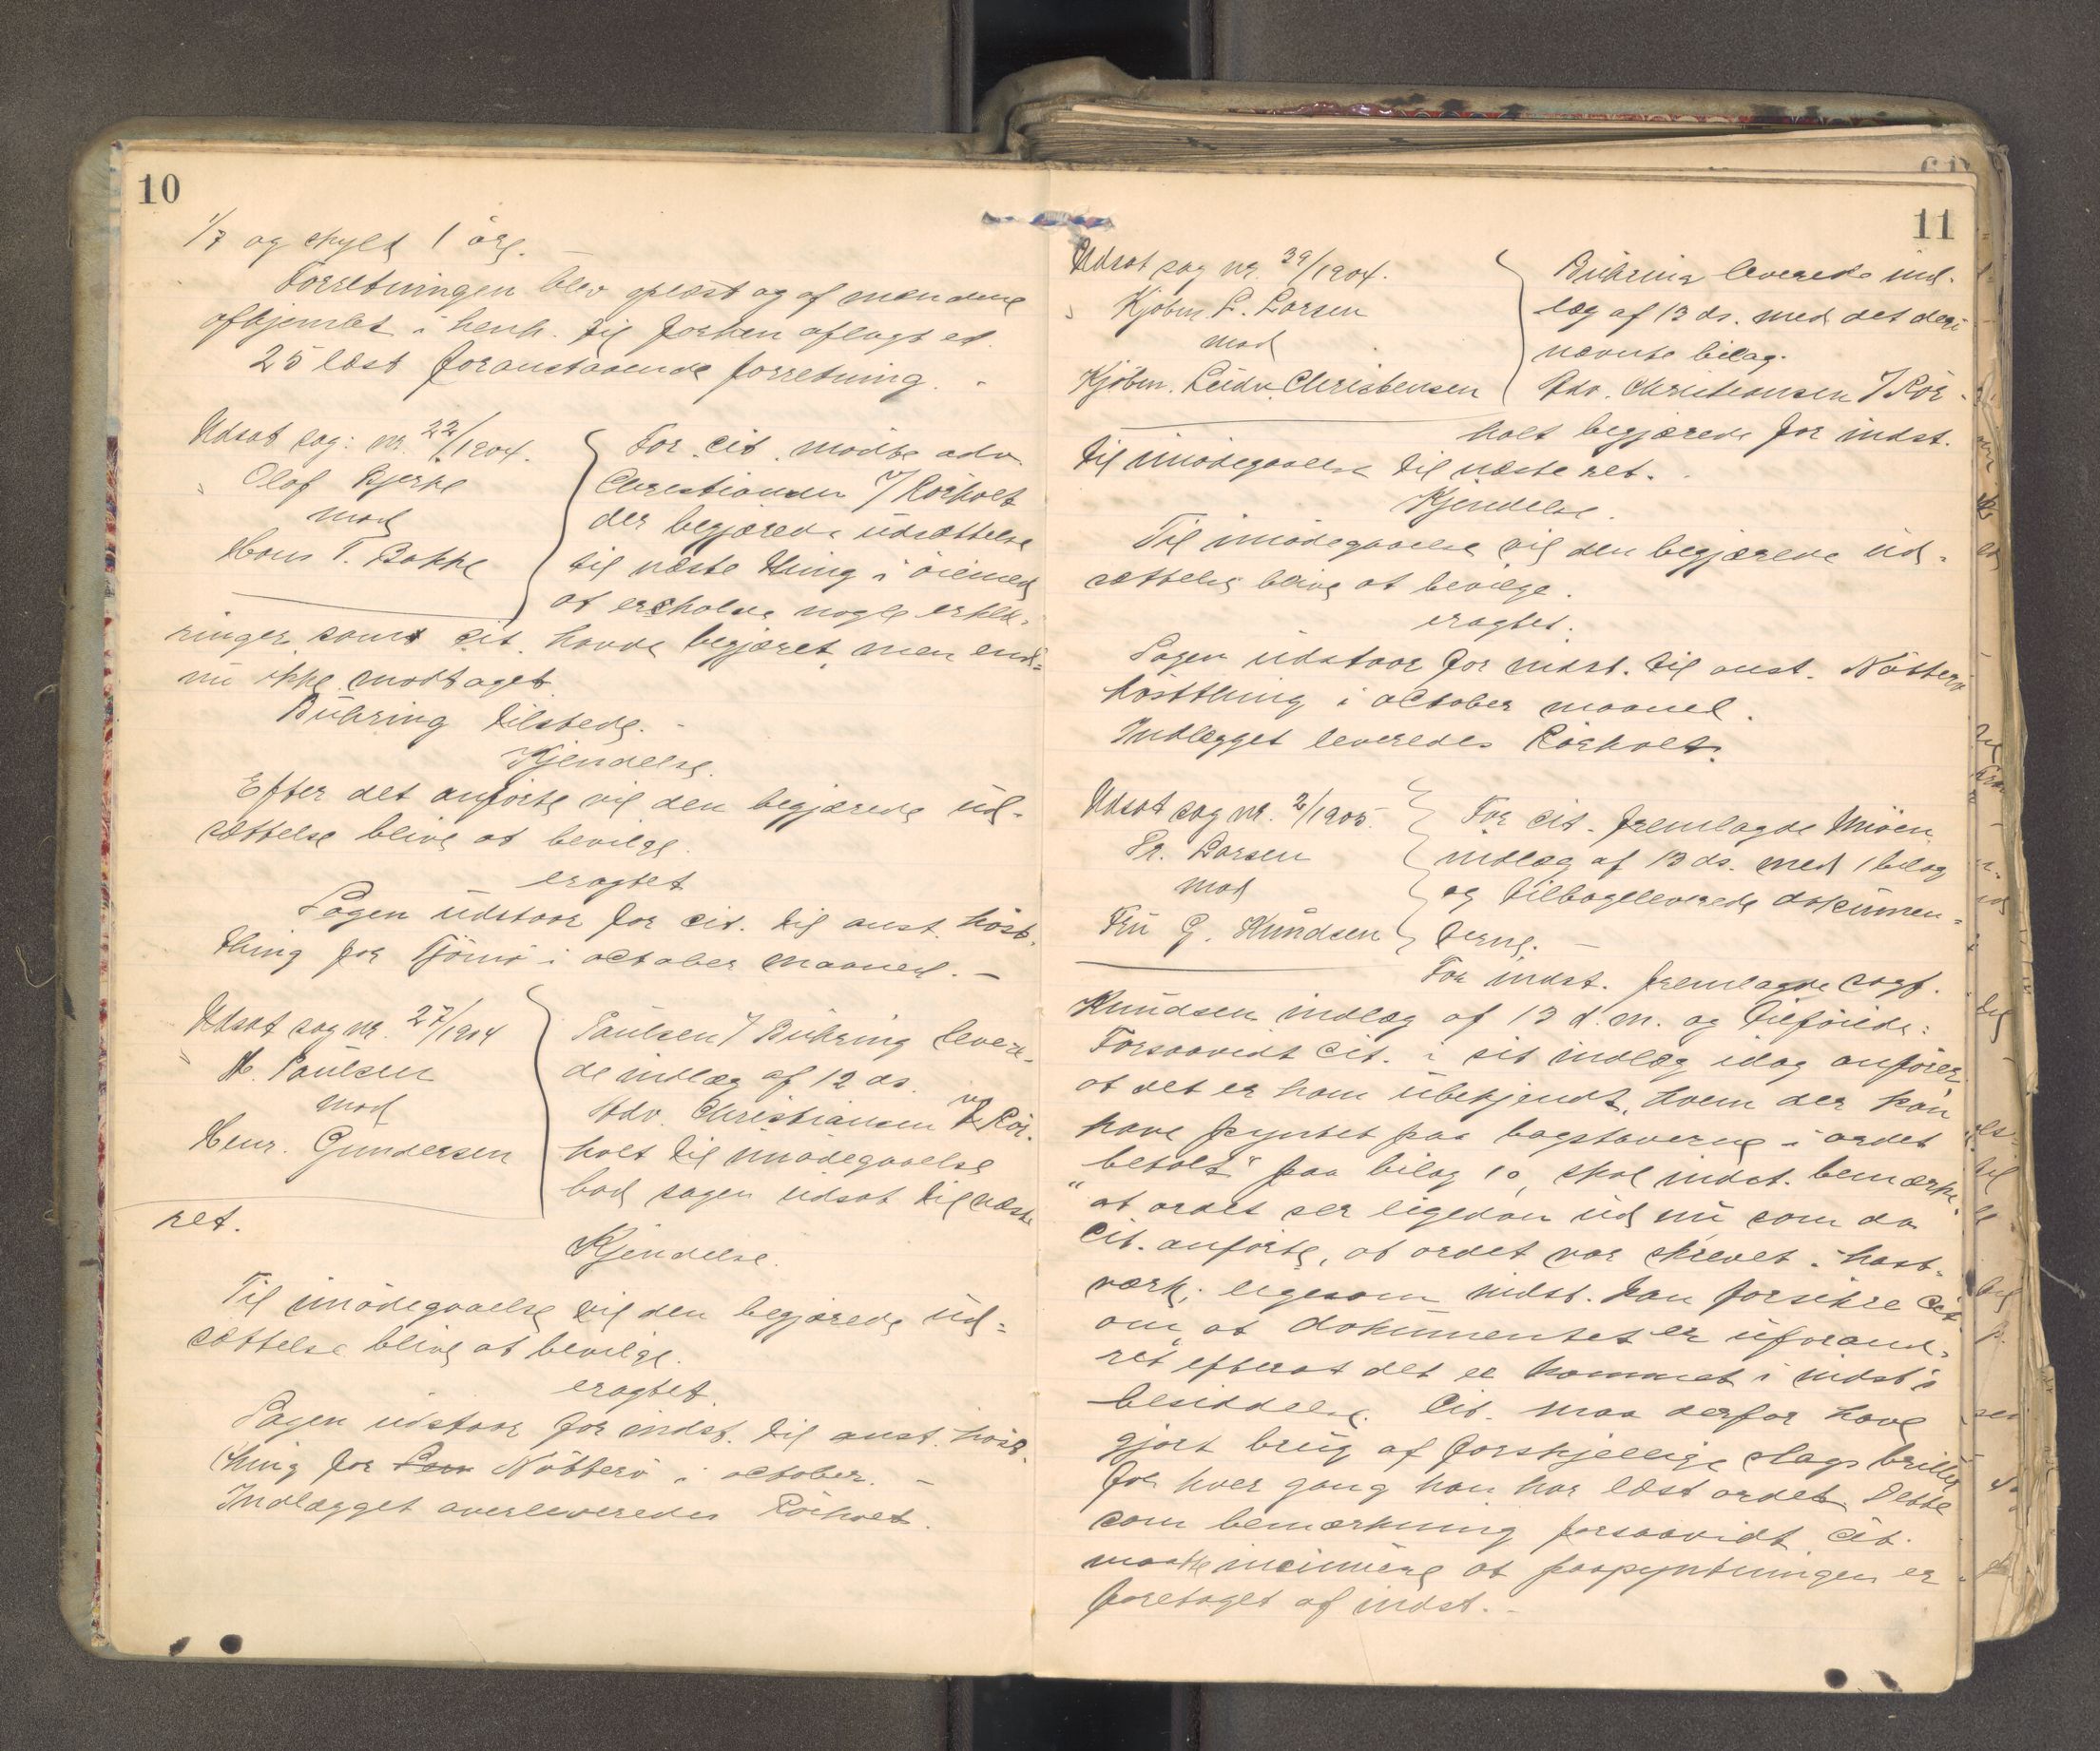 10
1/7 og skyld 1 øre. –
Forretningen blev oplæst og af mændene
afhjemlet i henh. til forhen aflagt ed.
25 læst foranstaaende forretning. -
Udsat sag: nr. 22/1904.
Olaf Bjerke
mod
Hans T. Bakke
For cit. mødte adv.
Christiansen v/ Rörholt
der begjærede udsættelse
til næste thing i öiemed
at erholde nogle erklæ-
ringer som cit. havde begjæret men end-
nu ikke modtaget.
Bühring tilstede. -
Kjendelse.
Efter det anförte vil den begjærede ud-
sættelse blive at bevilge.
eragtet
Sagen udstaar for cit. til anst. höst-
thing for Tjömö i october maaned. –
Udsat sag nr. 27/1904
A. Paulsen
mod
Henr. Gundersen
Paulsen v/ Bühring levere-
de indlæg af 12 ds.
Adv. Christiansen v/ Rör-
holt til imödegaaelse
bad sagen udsat til næste
ret.
Kjendelse.
Til imödegaaelse vil den begjærede ud-
sættelse blive at bevilge.
eragtet.
Sagen udstaar for indst. til anst. höst-
thing for Nötterö i october. –
Indlægget overleveredes Rörholt.
11
Udsat sag nr. 39/1904.
Kjöbm. L. Larsen
mod
Kjöbm. Ludv. Christensen
Bühring leverede ind-
læg af 13 ds. med det deri
nævnte bilag.
Adv. Christiansen v/ Rör-
holt begjærede for indst.
til imödegaaelse til næste ret.
Kjendelse.
Til imödegaaelse vil den begjærede ud-
sættelse blive at bevilge.
eragtet.
Sagen udstaar for indst. til anst. Nötterö
höstthing i october maaned.
Indlægget leveredes Rörholt.
Udsat sag nr. 2/1905.
Fr. Larsen
mod
Fru G. Knudsen
For cit. fremlagde
indlæg af 13 ds. med 1 bilag
og tilbageleverede dokumen-
terne. –
For indst. fremlagde sagf.
Knudsen indlæg af 13 d.m. og tilföiede:
Forsaavidt cit. i sit indlæg idag anförer
at det er ham ubekjendt, hvem der kan
have pyntet paa bogstaverne i ordet
"betalt" paa bilag 10, skal indst. bemærke
at ordet ser ligedan ud nu som da
cit. anförte, at ordet var skrevet i hast-
værk, ligesom indst. kan forsikre cit.
om, at dokumentet er uforand-
ret efterat det er kommet i indst's
besiddelse. Cit. maa derfor have
gjort brug af forskjellige slags briller
for hver gang han har læst ordet. Dette
som bemærkning forsaavidt cit.
maatte insinuere at paapyntningen er
foretaget af indst. -